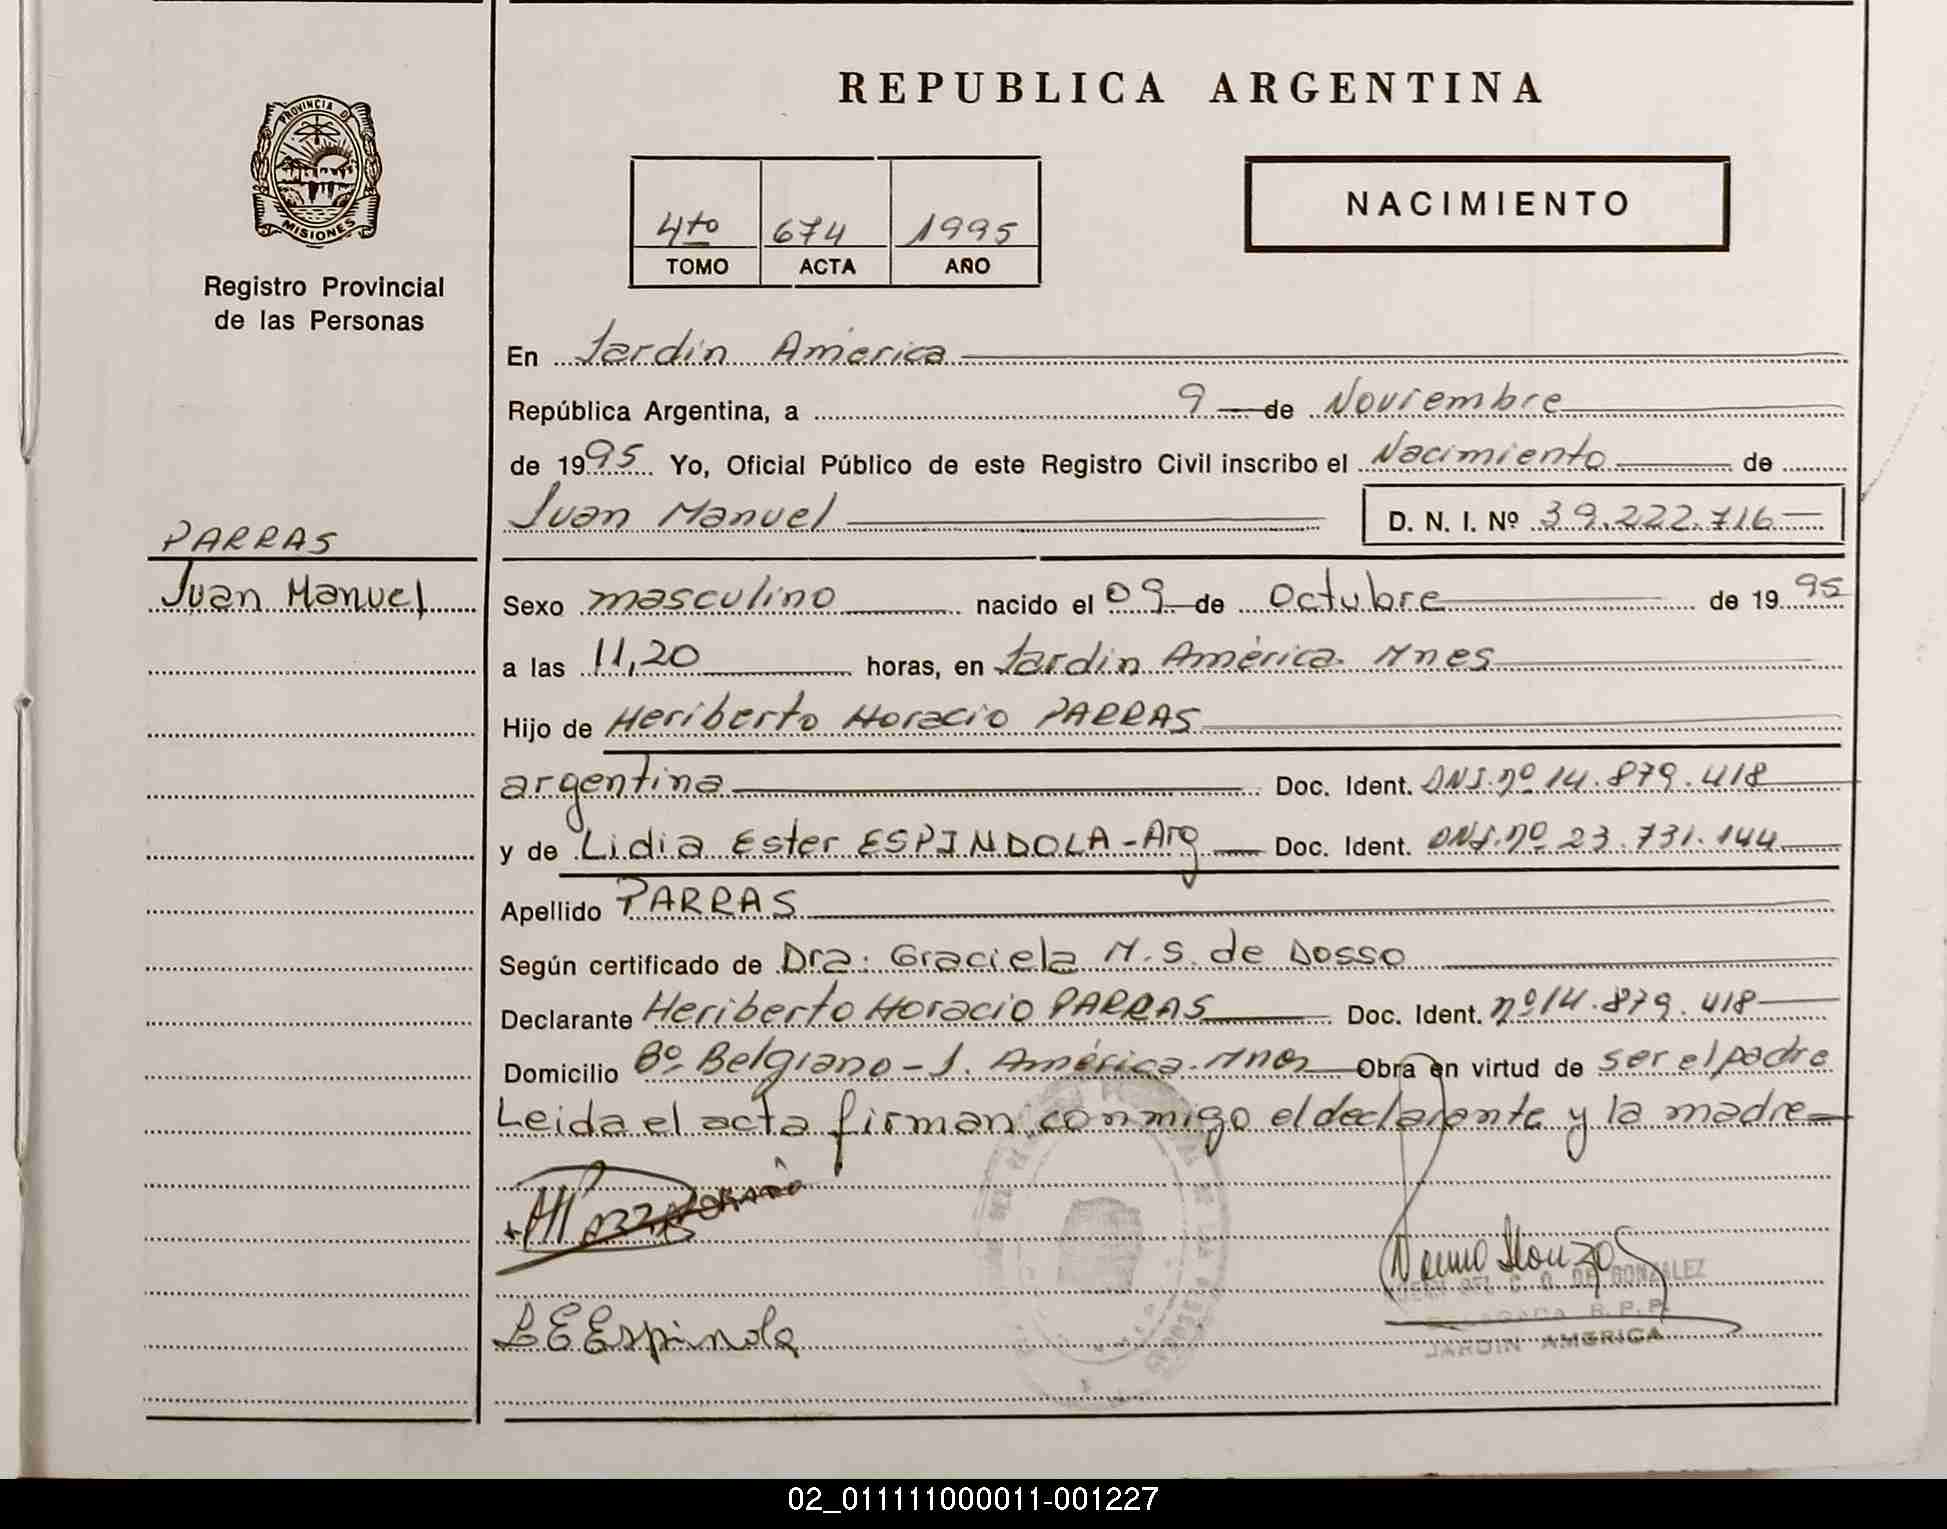 REPUBLICA ARGENTINA
PROVINCIA DE
MISIONES
Registro Provincial
de las Personas
NACIMIENTO
4to 674 1995
TOMO ACTA AÑO
En Jardin América
República Argentina, a 9 de Noviembre
de 1995 Yo, Oficial Público de este Registro Civil inscribo el Nacimiento de
Juan Manuel D. N. I. Nº 39.222.716
PARRAS
Juan Manuel
Sexo masculino nacido el 09 de Octubre de 1995
a las 11,20 horas, en Jardin América Mnes
Hijo de Heriberto Horacio PARRAS
argentina Doc. Ident. DNI.nº 14.879.418
y de Lidia Ester ESPINDOLA - Arg Doc. Ident. DNI.nº 23.731.144
Apellido PARRAS
Según certificado de Dra. Graciela M. S. de Dosso
Declarante Heriberto Horacio PARRAS Doc. Ident. nº 14.879.418
Domicilio Bº Belgrano - J. América. Mnes Obra en virtud de ser el padre
Leida el acta firman conmigo el declarante y la madre
DE GONZALEZ
R.P.P.
JARDIN AMERICA
L E Espindola
02_011111000011-001227